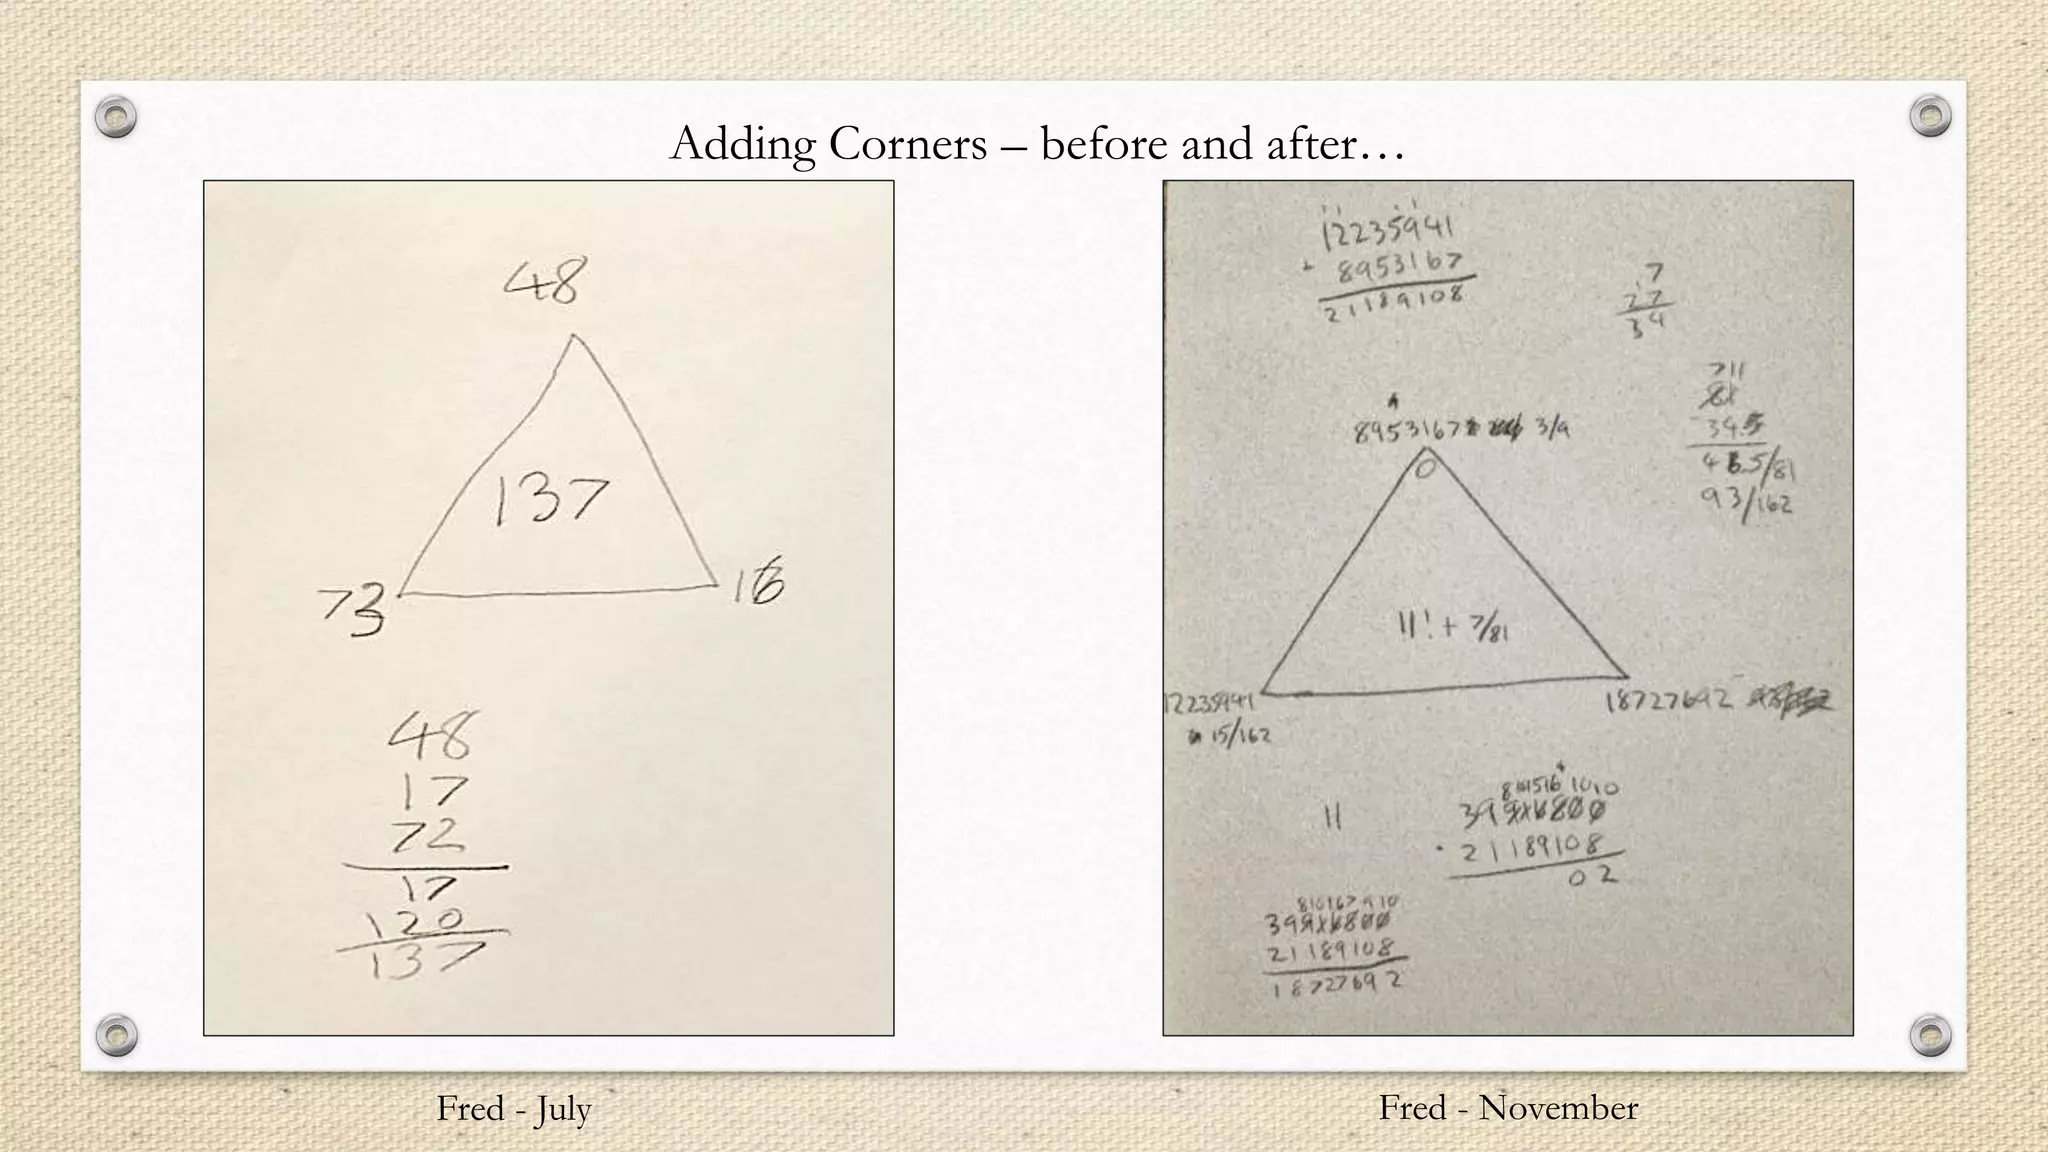 Adding Corners – before and after…
48
137
73
16
48
17
72
17
120
137
12235941
+ 8953167
21189108
7
27
34
711
81
34.5
46.5/81
93/162
8953167 3/9
0
11! + 7/81
12235941
15/162
18727692
11
39916800
21189108
02
39916800
21189108
18727692
Fred - July
Fred - November